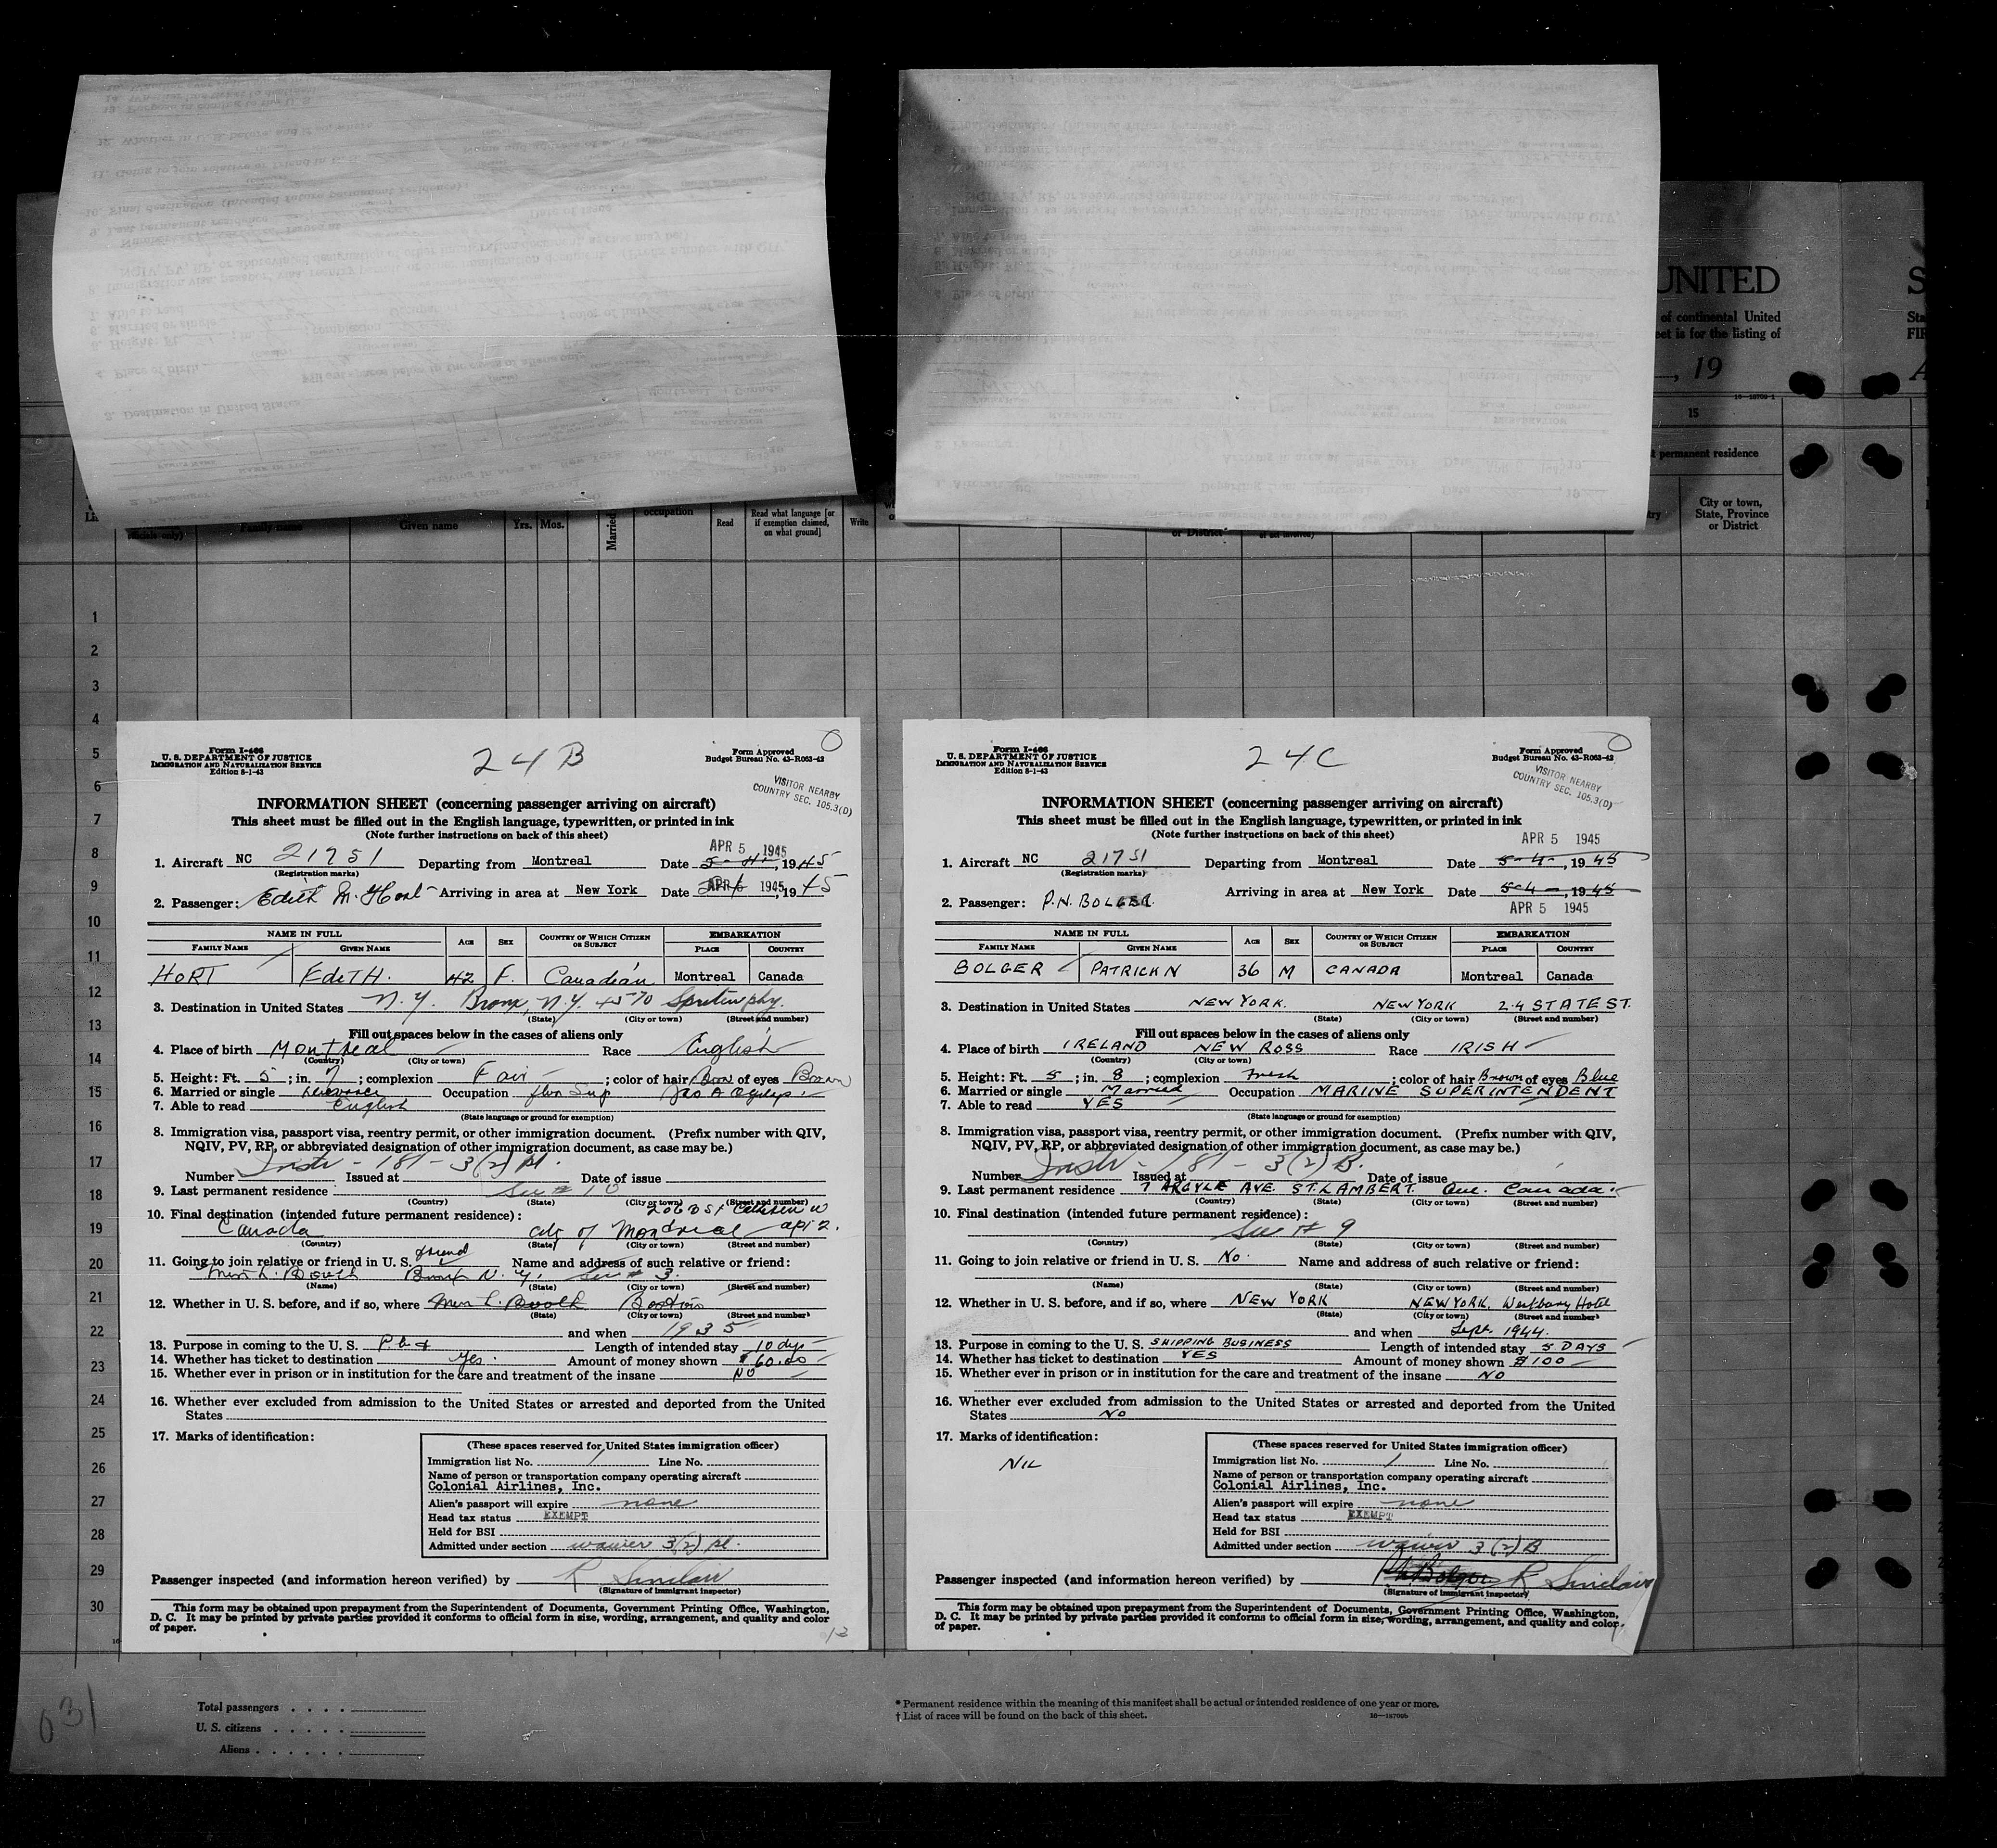 UNITED
of continental United
eet is for the listing of
, 19
16—18709-1
15
permanent residence
City or town,
State, Province
or District
S
Sta
FIR
A
Family name
Given name
Yrs.
Mos.
Married
occupation
Read
Read what language [or
if exemption claimed,
on what ground]
Write
or District
1
2
3
4
5
6
7
8
9
10
11
12
13
14
15
16
17
18
19
20
21
22
23
24
25
26
27
28
29
30
Form I-466
U. S. DEPARTMENT OF JUSTICE
IMMIGRATION AND NATURALIZATION SERVICE
Edition 8-1-43
24 B
Form Approved
Budget Bureau No. 43-R063-42
VISITOR NEARBY
COUNTRY SEC. 105.3(D)
INFORMATION SHEET (concerning passenger arriving on aircraft)
This sheet must be filled out in the English language, typewritten, or printed in ink
(Note further instructions on back of this sheet)
APR 5 1945
1. Aircraft NC 21751 Departing from Montreal Date 5-4-, 1945
(Registration marks)
2. Passenger: Edith M. Hort Arriving in area at New York Date APR 5 1945, 1945
NAME IN FULL AGE SEX COUNTRY OF WHICH CITIZEN OR SUBJECT EMBARKATION
FAMILY NAME GIVEN NAME PLACE COUNTRY
HORT EdiTH. 42 F. Canadian Montreal Canada
3. Destination in United States N.Y. Bronx, N.Y. 4570
(State) (City or town) (Street and number)
Fill out spaces below in the cases of aliens only
4. Place of birth Montreal Race English
(Country) (City or town)
5. Height: Ft. 5; in. 7; complexion Fair; color of hair Brown of eyes Brown
6. Married or single Occupation
7. Able to read English
(State language or ground for exemption)
8. Immigration visa, passport visa, reentry permit, or other immigration document. (Prefix number with QIV,
NQIV, PV, RP, or abbreviated designation of other immigration document, as case may be.)
Number Instr - 181 - 3(2) Issued at Date of issue
9. Last permanent residence See # 10
(Country) (State) (City or town) (Street and number)
10. Final destination (intended future permanent residence):
Canada city of Montreal
(Country) (State) (City or town) (Street and number)
11. Going to join relative or friend in U. S. friend Name and address of such relative or friend:
Bronx N.Y. See # 3.
(Name) (State) (City or town) (Street and number)
12. Whether in U. S. before, and if so, where Boston
(State) (City or town) (Street and number)
and when 1935
13. Purpose in coming to the U. S. Length of intended stay 10 dys
14. Whether has ticket to destination yes. Amount of money shown $60.00
15. Whether ever in prison or in institution for the care and treatment of the insane NO
16. Whether ever excluded from admission to the United States or arrested and deported from the United
States
17. Marks of identification:
(These spaces reserved for United States immigration officer)
Immigration list No. 1 Line No.
Name of person or transportation company operating aircraft
Colonial Airlines, Inc.
Alien's passport will expire none
Head tax status EXEMPT
Held for BSI
Admitted under section waiver 3(2)
Passenger inspected (and information hereon verified) by R Sinclair
(Signature of immigrant inspector)
This form may be obtained upon prepayment from the Superintendent of Documents, Government Printing Office, Washington,
D. C. It may be printed by private parties provided it conforms to official form in size, wording, arrangement, and quality and color
of paper.
Form I-466
U. S. DEPARTMENT OF JUSTICE
IMMIGRATION AND NATURALIZATION SERVICE
Edition 8-1-43
24C
Form Approved
Budget Bureau No. 43-R063-42
VISITOR NEARBY
COUNTRY SEC. 105.3(D)
INFORMATION SHEET (concerning passenger arriving on aircraft)
This sheet must be filled out in the English language, typewritten, or printed in ink
(Note further instructions on back of this sheet)
APR 5 1945
1. Aircraft NC 21751 Departing from Montreal Date 5-4-, 1945
(Registration marks)
2. Passenger: P.N. BOLGER. Arriving in area at New York Date 5-4-, 1945
APR 5 1945
NAME IN FULL AGE SEX COUNTRY OF WHICH CITIZEN OR SUBJECT EMBARKATION
FAMILY NAME GIVEN NAME PLACE COUNTRY
BOLGER PATRICK N 36 M CANADA Montreal Canada
3. Destination in United States NEW YORK. NEW YORK 24 STATE ST.
(State) (City or town) (Street and number)
Fill out spaces below in the cases of aliens only
4. Place of birth IRELAND NEW ROSS Race IRISH
(Country) (City or town)
5. Height: Ft. 5; in. 8; complexion Fresh; color of hair Brown of eyes Blue
6. Married or single Married Occupation MARINE SUPERINTENDENT
7. Able to read YES
(State language or ground for exemption)
8. Immigration visa, passport visa, reentry permit, or other immigration document. (Prefix number with QIV,
NQIV, PV, RP, or abbreviated designation of other immigration document, as case may be.)
Number Instr - 181 - 3(2) B. Issued at Date of issue
9. Last permanent residence 7 ARGYLE AVE. ST. LAMBERT. Que. Canada.
(Country) (State) (City or town) (Street and number)
10. Final destination (intended future permanent residence):
See # 9
(Country) (State) (City or town) (Street and number)
11. Going to join relative or friend in U. S. No. Name and address of such relative or friend:
(Name) (State) (City or town) (Street and number)
12. Whether in U. S. before, and if so, where NEW YORK NEW YORK. Westbury Hotel
(State) (City or town) (Street and number)
and when Sept. 1944.
13. Purpose in coming to the U. S. SHIPPING BUSINESS Length of intended stay 5 DAYS
14. Whether has ticket to destination YES Amount of money shown $100
15. Whether ever in prison or in institution for the care and treatment of the insane NO
16. Whether ever excluded from admission to the United States or arrested and deported from the United
States NO
17. Marks of identification:
NIL
(These spaces reserved for United States immigration officer)
Immigration list No. 1 Line No.
Name of person or transportation company operating aircraft
Colonial Airlines, Inc.
Alien's passport will expire none
Head tax status EXEMPT
Held for BSI
Admitted under section waiver 3(2) B
Passenger inspected (and information hereon verified) by P.N. Bolger R Sinclair
(Signature of immigrant inspector)
This form may be obtained upon prepayment from the Superintendent of Documents, Government Printing Office, Washington,
D. C. It may be printed by private parties provided it conforms to official form in size, wording, arrangement, and quality and color
of paper.
031
Total passengers . . . .
U. S. citizens . . . . .
Aliens . . . . . .
* Permanent residence within the meaning of this manifest shall be actual or intended residence of one year or more.
† List of races will be found on the back of this sheet.